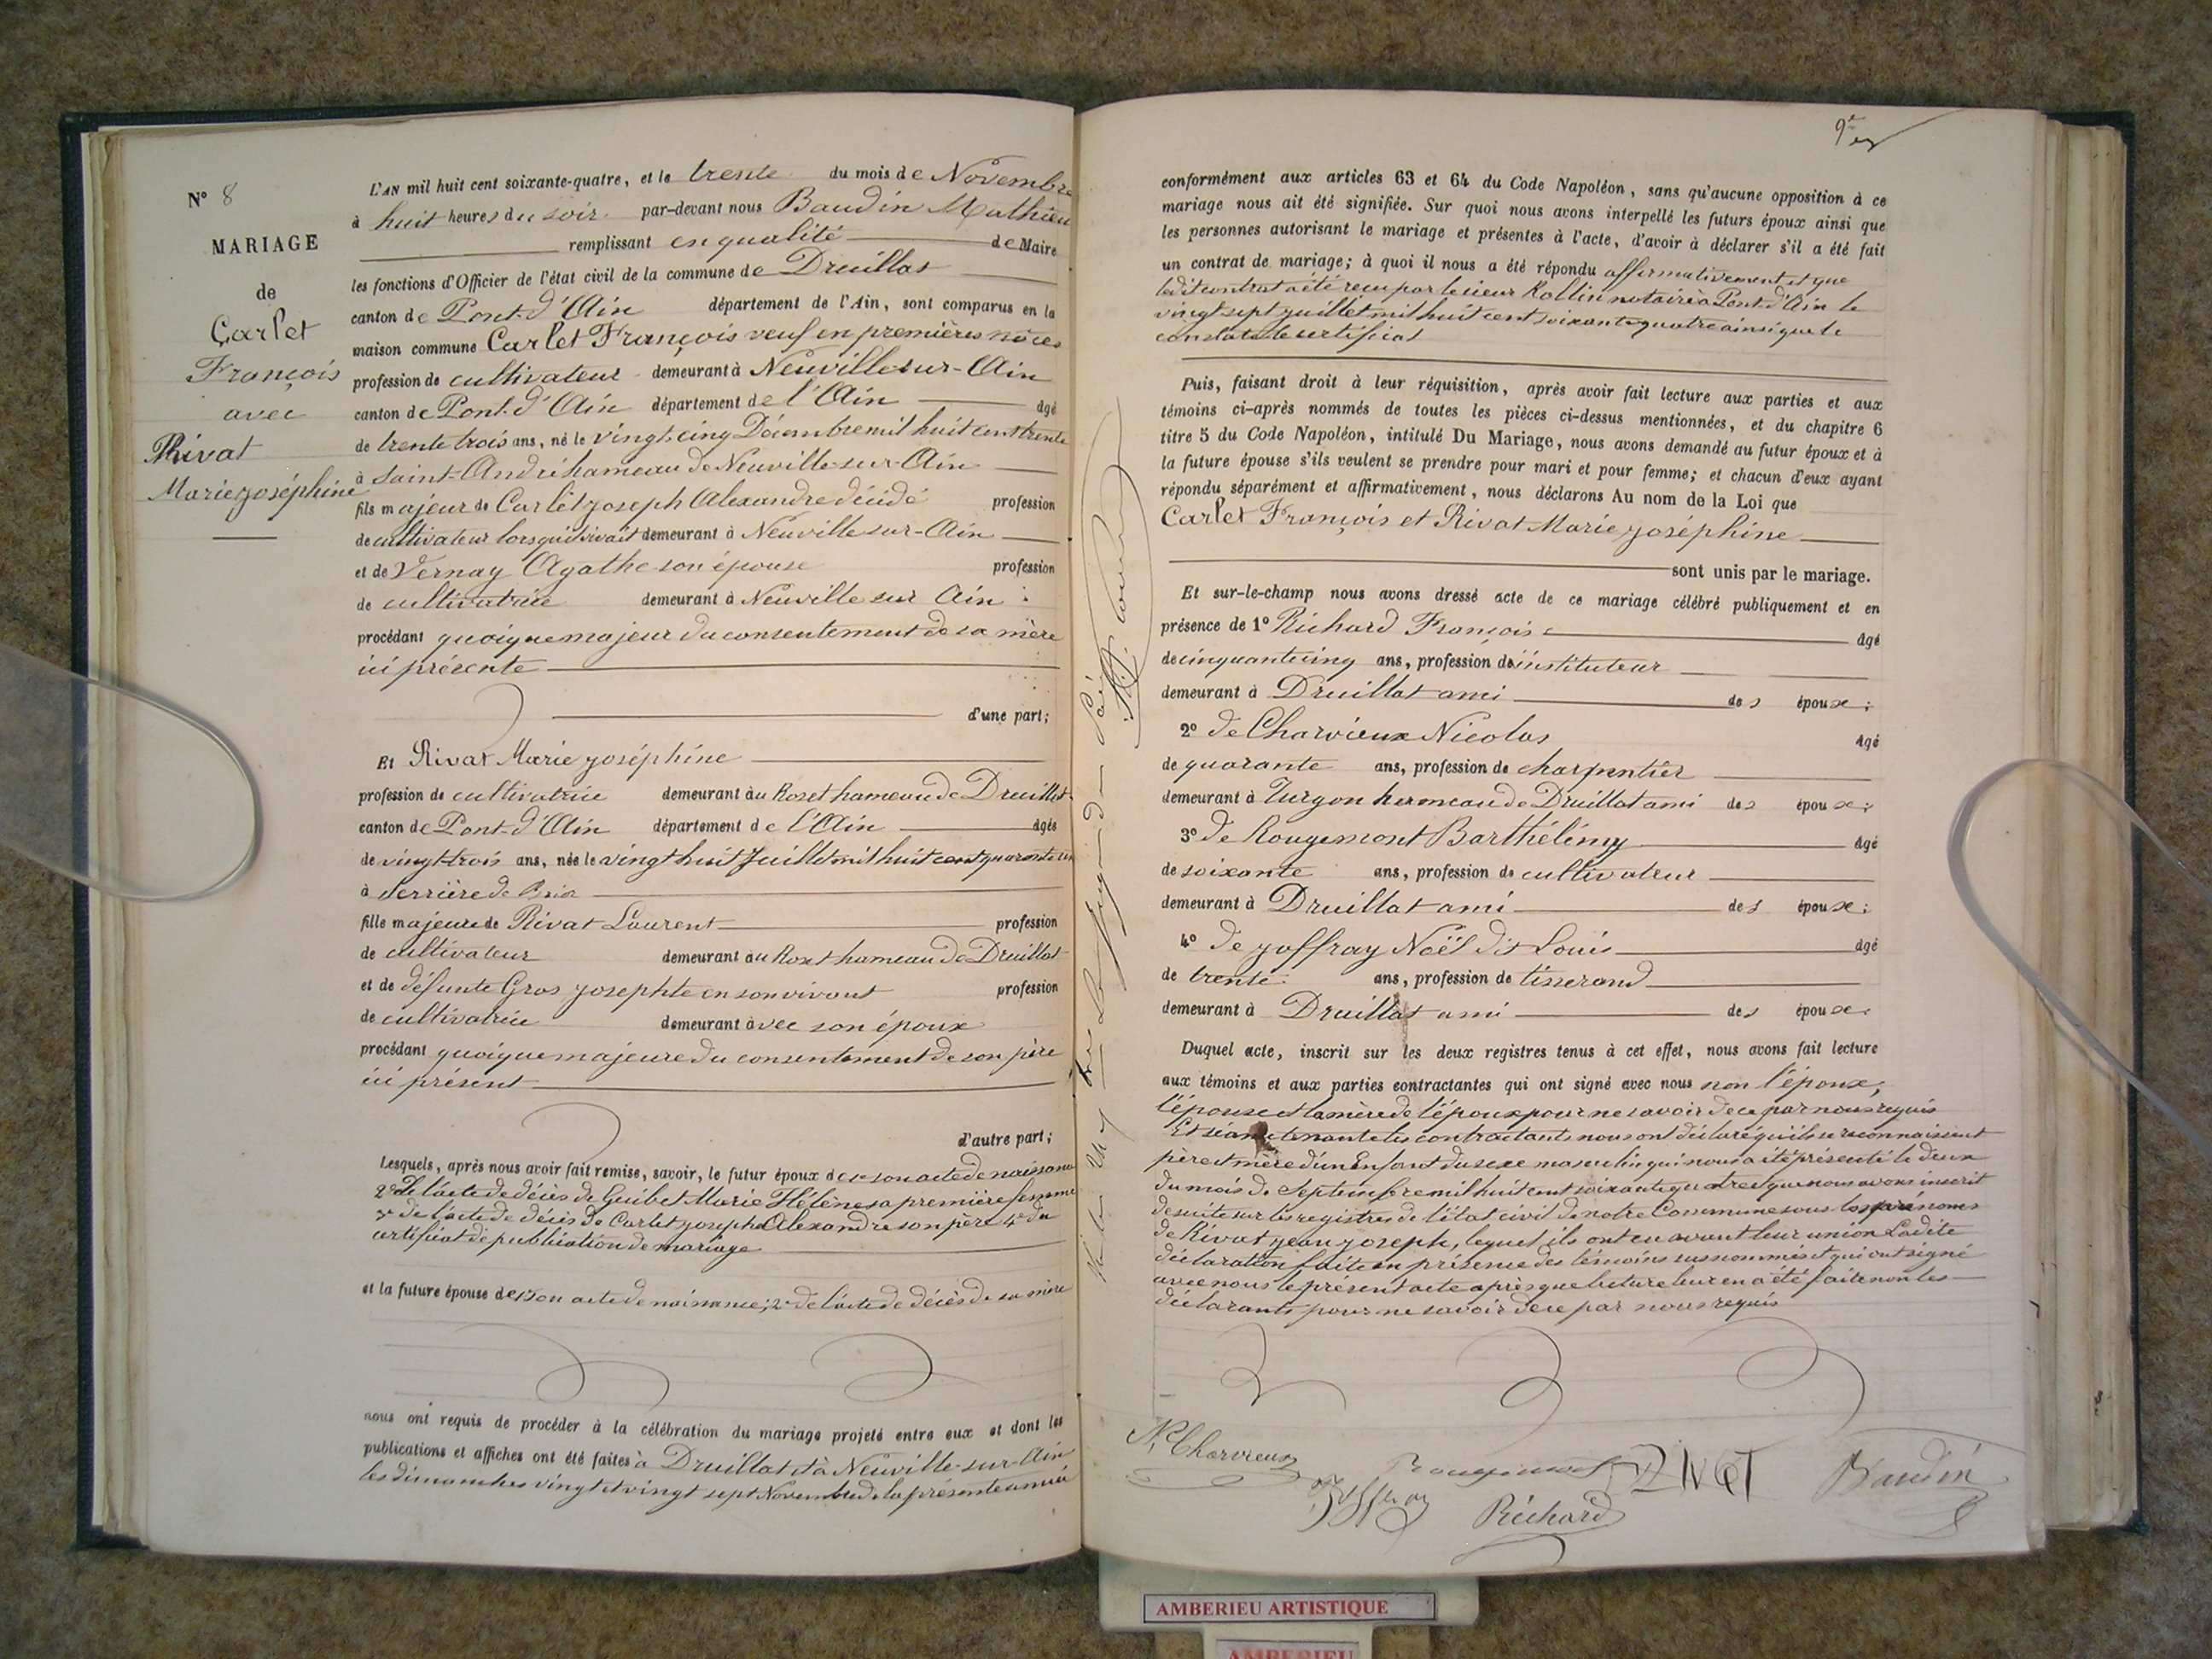 N° 8
MARIAGE
de
Carlet
François
avec
Rivat
Marie joséphine
L'AN mil huit cent soixante-quatre, et le trente du mois de Novembre
à huit heures du soir par-devant nous Baudin Mathieu
remplissant en qualité de Maire
les fonctions d'Officier de l'état civil de la commune de Druillat
canton de Pont-d'Ain département de l'Ain, sont comparus en la
maison commune Carlet François veuf en premières noces
profession de cultivateur demeurant à Neuville sur-Ain
canton de Pont-d'Ain département de l'Ain âgé
de trente trois ans, né le vingt-cinq Décembre mil huit cent trente
à Saint-André hameau de Neuville-sur-Ain
fils majeur de Carlet joseph Alexandre décédé profession
de cultivateur lorsqu'il vivait demeurant à Neuville sur-Ain
et de Vernay Agathe son épouse profession
de cultivatrice demeurant à Neuville sur Ain
procédant quoique majeur du consentement de sa mère
ici présente
d'une part;
Et Rivat Marie joséphine
profession de cultivatrice demeurant au Roset hameau de Druillat
canton de Pont-d'Ain département de l'Ain âgée
de vingt-trois ans, née le vingt huit Juillet mil huit cent quarante un
à derrière de
fille majeure de Rivat Laurent profession
de cultivateur demeurant au Roset hameau de Druillat
et de défunte Gros josephte en son vivant profession
de cultivatrice demeurant avec son époux
procédant quoique majeure du consentement de son père
ici présent
d'autre part;
Lesquels, après nous avoir fait remise, savoir, le futur époux de 1° son acte de naissance
2° de l'acte de décès de Guibet Marie Hélène sa première femme
3° de l'acte de décès de Carlet joseph Alexandre son père 4° du
certificat de publication de mariage
et la future épouse de 1° son acte de naissance; 2° de l'acte de décès de sa mère
nous ont requis de procéder à la célébration du mariage projeté entre eux et dont les
publications et affiches ont été faites à Druillat et à Neuville-sur-Ain
les dimanches vingt et vingt sept Novembre de la présente année
9e
conformément aux articles 63 et 64 du Code Napoléon, sans qu'aucune opposition à ce
mariage nous ait été signifiée. Sur quoi nous avons interpellé les futurs époux ainsi que
les personnes autorisant le mariage et présentes à l'acte, d'avoir à déclarer s'il a été fait
un contrat de mariage; à quoi il nous a été répondu affirmativement et que
ledit contrat a été reçu par le sieur Rollin notaire à Pont-d'Ain le
vingt sept juillet mil huit cent soixante quatre ainsi que le
constate le certificat
Puis, faisant droit à leur réquisition, après avoir fait lecture aux parties et aux
témoins ci-après nommés de toutes les pièces ci-dessus mentionnées, et du chapitre 6
titre 5 du Code Napoléon, intitulé Du Mariage, nous avons demandé au futur époux et à
la future épouse s'ils veulent se prendre pour mari et pour femme; et chacun d'eux ayant
répondu séparément et affirmativement, nous déclarons Au nom de la Loi que
Carlet François et Rivat Marie joséphine
sont unis par le mariage.
Et sur-le-champ nous avons dressé acte de ce mariage célébré publiquement et en
présence de 1° Richard François âgé
de cinquante cinq ans, profession d'instituteur
demeurant à Druillat ami des époux;
2° de Charvieux Nicolas âgé
de quarante ans, profession de charpentier
demeurant à Turgon hameau de Druillat ami des époux;
3° de Rougemont Barthélémy âgé
de soixante ans, profession de cultivateur
demeurant à Druillat ami des époux;
4° de joffray Noël dit Louis âgé
de trente ans, profession de tisserand
demeurant à Druillat ami des époux.
Duquel acte, inscrit sur les deux registres tenus à cet effet, nous avons fait lecture
aux témoins et aux parties contractantes qui ont signé avec nous non l'époux,
l'épouse et la mère de l'époux pour ne savoir de ce par nous requis
Et séance tenante les contractants nous ont déclaré qu'ils se reconnaissent
père et mère d'un Enfant du sexe masculin qui nous a été présenté le deux
du mois de Septembre mil huit cent soixante quatre et que nous avons inscrit
de suite sur les registres de l'état civil de notre Commune sous les prénoms
de Rivat jean joseph, lequel ils ont eu avant leur union. Ladite
déclaration faite en présence des témoins susnommés et qui ont signé
avec nous le présent acte après que lecture leur en a été faite non les
déclarants pour ne savoir de ce par nous requis
N. Charvieux
Rougemont
Joffray
Richard
RIVAT
Baudin
AMBERIEU ARTISTIQUE
AMBERIEU